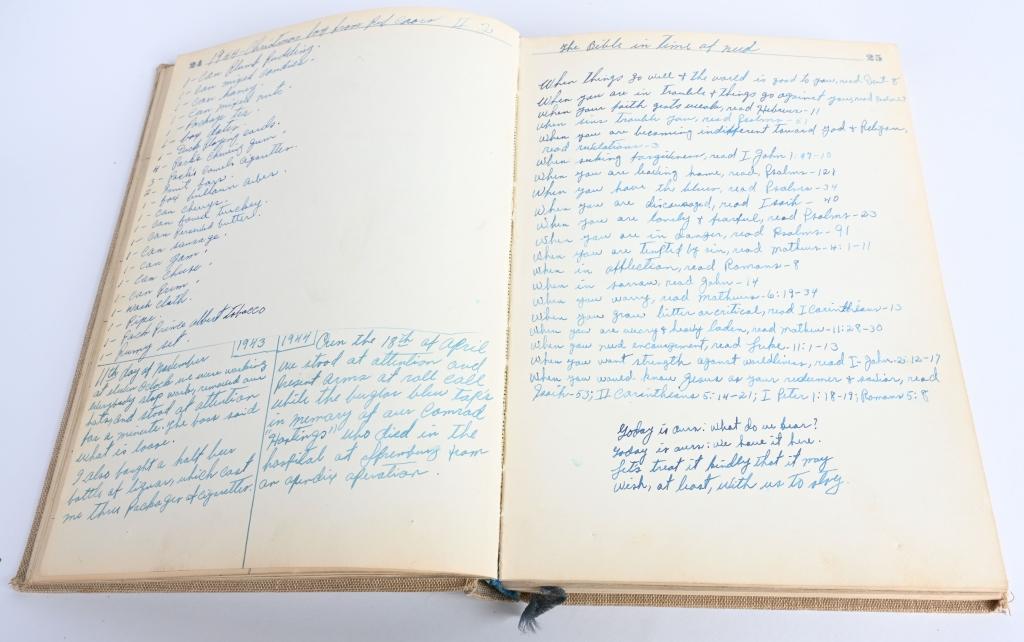 24 1944 Christmas box from Red Cross
1- Can Plumb Pudding.
1- Can mixed candies.
1- Can honey.
1- Can mixed nuts.
1- Package tea.
1- box dates.
1- Deck Playing cards.
4- Packs Chewing gum.
3- Packs Camels cigarettes.
2- Fruit bars.
1- box bullion cubes.
1- can cherrys.
1- can boned turkey.
1- Can Deranded butter.
1- Can sausage.
1- Can Jam.
1- Can cheese.
1- Can
1- Wash cloth.
1- Pipe.
1- Pack Prince Albert tobacco
1- Rummy set.
1943
11th day of November
at eleven O.clock we were working
everybody stop work, removed our
hats, and stood at attention
for a minute. The boss said
what is loose.
I also bought a half beer
bottle of liquor, which cost
me three Packages of cigarettes.
1944 On the 18th of April
we stood at attention and
Present Arms at roll call
while the burglar blew taps
in memory of our Comrad
"Hastings" who died in the
hospital at offenburg from
an apendix operation.
The Bible in time of need
25
When things go well & the world is good to you, read Deut-8
When you are in trouble & things go against you, read
When your faith gets weak, read Hebrews-11
When sins trouble you, read Psalms-51
When you are becoming indifferent toward God & Religion,
read revelations-3
When seeking forgiveness, read I John 1:#7-10
When you are leaving home, read, Psalms-121
When you have the blues, read Psalms-34
When you are discouraged, read Isaih-40
When you are lonely & fearful, read Psalms-23
When you are in danger, read Psalms-91
When you are tempted by sin, read mathews-4:1-11
When in afflection, read Romans-8
When in sorrow, read John-14
When you worry, read Mathews-6:19-34
When you grow bitter or critical, read I Corinthians-13
When you are weary & heavy laden, read mathew-11:28-30
When you need encouragment, read Luke-11:1-13
When you want strength against worldliness, read I-John:2:12-17
When you would know Jesus as your redeemer & savior, read
Isaih-53; II Corinthians 5:14-21; I Peter 1:18-19; Romans 5:8
Today is ours: what do we fear?
Today is ours: we have it here.
Lets treat it kindly that it may
Wish, at least, with us to stay.